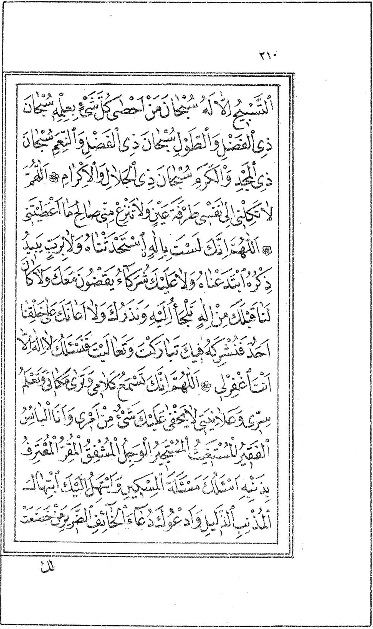 ٣١٠
التَّسْبِيحُ إِلَّا لَهُ سُبْحَانَ مَنْ أَحْصَى كُلَّ شَيْءٍ بِعِلْمِهِ سُبْحَانَ
ذِي الْفَضْلِ وَالطَّوْلِ سُبْحَانَ ذِي الْفَضْلِ وَالنِّعَمِ سُبْحَانَ
ذِي الْمَجْدِ وَالْكَرَمِ سُبْحَانَ ذِي الْجَلَالِ وَالْإِكْرَامِ اللَّهُمَّ
لَا تَكِلْنِي إِلَى نَفْسِي طَرْفَةَ عَيْنٍ وَلَا تَنْزِعْ مِنِّي صَالِحَ مَا أَعْطَيْتَنِي
اللَّهُمَّ إِنَّكَ لَسْتَ بِإِلَهٍ اسْتَحْدَثْنَاهُ وَلَا بِرَبٍّ يَبِيدُ
ذِكْرُهُ ابْتَدَعْنَاهُ وَلَا عَلَيْكَ شُرَكَاءُ يَقْضُونَ مَعَكَ وَلَا كَانَ
لَنَا قَبْلَكَ مِنْ إِلَهٍ نَلْجَأُ إِلَيْهِ وَنَذَرُكَ وَلَا أَعَانَكَ عَلَى خَلْقِنَا
أَحَدٌ فَنُشْرِكَهُ فِيكَ تَبَارَكْتَ وَتَعَالَيْتَ فَنَسْئَلُكَ لَا إِلَهَ إِلَّا
أَنْتَ اغْفِرْ لِي اللَّهُمَّ إِنَّكَ تَسْمَعُ كَلَامِي وَتَرَى مَكَانِي وَتَعْلَمُ
سِرِّي وَعَلَانِيَتِي لَا يَخْفَى عَلَيْكَ شَيْءٌ مِنْ أَمْرِي وَأَنَا الْبَائِسُ
الْفَقِيرُ الْمُسْتَغِيثُ الْمُسْتَجِيرُ الْوَجِلُ الْمُشْفِقُ الْمُقِرُّ الْمُعْتَرِفُ
بِذَنْبِهِ أَسْئَلُكَ مَسْئَلَةَ الْمِسْكِينِ وَأَبْتَهِلُ إِلَيْكَ ابْتِهَالَ
الْمُذْنِبِ الذَّلِيلِ وَأَدْعُوكَ دُعَاءَ الْخَائِفِ الضَّرِيرِ مَنْ خَضَعَتْ
لك